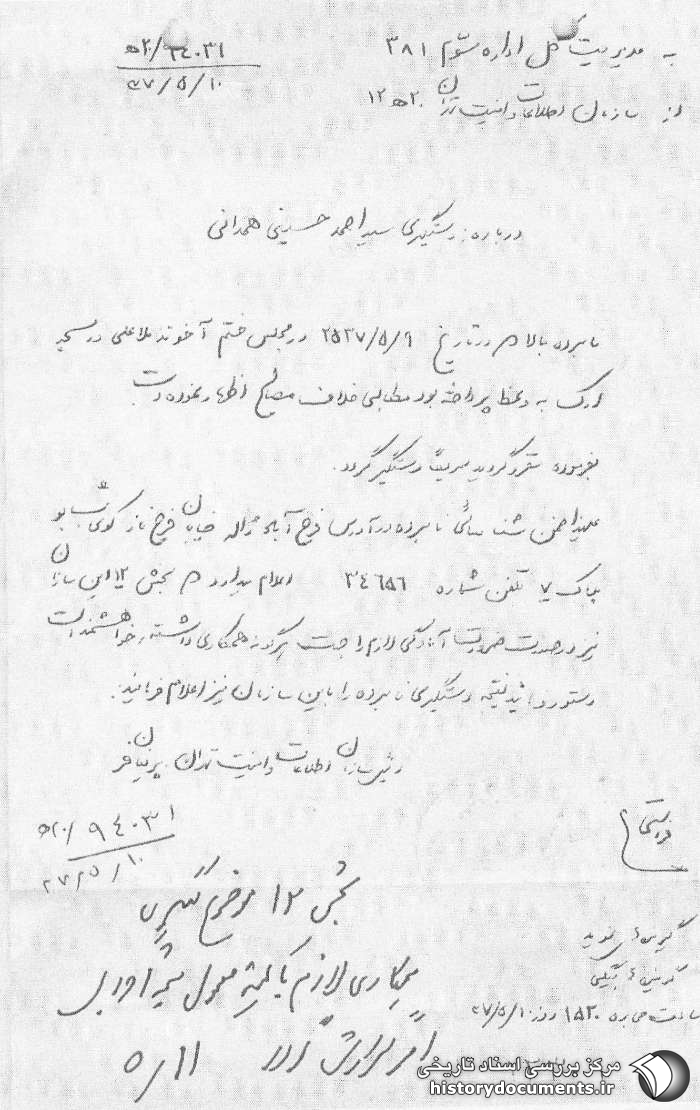 به مدیریت کل اداره سوم ۳۸۱
۵۲۰/۹۴۰۳۱
۳۷/۵/۱۰
از سازمان اطلاعات و امنیت تهران ۲۰ ه ۱۲
درباره: دستگیری سید احمد حسینی همدانی
نامبرده بالا در تاریخ ۲۵۳۷/۵/۹ در مجلس ختم آخوند ملا علی در مسجد
ارک به وعظ پرداخته بود مطالبی خلاف مصالح اظهار نموده است
بفرموده مقرر گردید سریعاً دستگیر گردد.
علیهذا ضمن شناسائی نامبرده در آدرس فرح آباد ژاله خیابان فرح ناز کوی
پلاک ۷ تلفن شماره ۳۴۶۵۶ اعلام میدارد بخش ۱۲ این سازمان
نیز در صورت ضرورت آمادگی لازم را جهت هرگونه همکاری داشته، خواهشمند است
دستور فرمائید نتیجه دستگیری نامبرده را باین سازمان نیز اعلام فرمائید.
رئیس سازمان اطلاعات و امنیت تهران پرنیان فر
۵۲۰/۹۴۰۳۱
۳۷/۵/۱۰
بخش ۱۲ موضوع
همکاری لازم با کمیته معمول
امر گزارش گردد ۵/۱۱
گیرنده
گوینده
ساعت مخابره ۱۵۲۰ روز ۳۷/۵/۱۰
مرکز بررسی اسناد تاریخی
historydocuments.ir